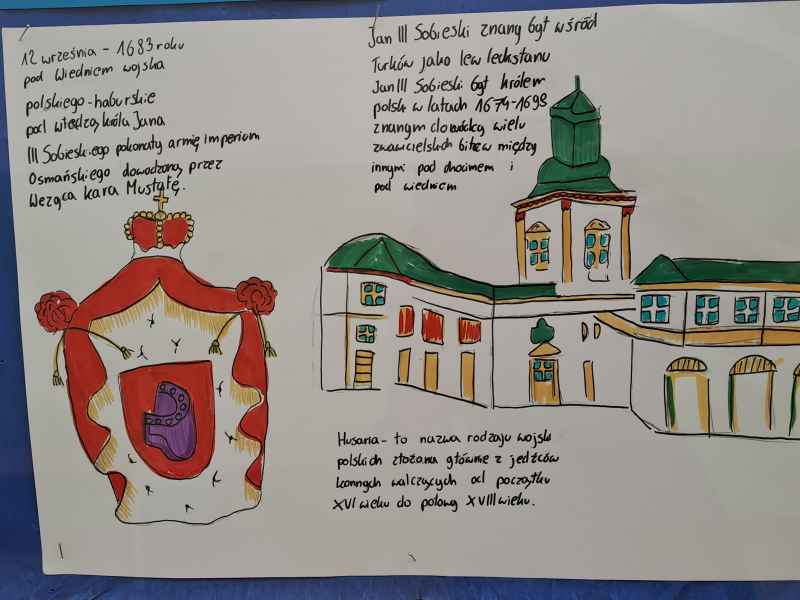 12 września - 1683 roku
pod Wiedniem wojska
polskiego-haburskie
pod włedzą króla Jana
III Sobieskiego pokonały armię Imperium
Osmańskiego dowodzoną przez
Wezyra kara Mustafę.
Jan III Sobieski znany był wśród
Turków jako lew lechstanu
Jan III Sobieski był królem
polsk w latach 1674-1698
znanym dowódcą wielu
zwawcielskich bitew między
innymi pod chocimem i
pod wiedniem
Husaria - to nazwa rodzaju wojsk
polskich złożona głównie z jeźdźców
konnych walczących od początku
XVI wieku do połowy XVIII wieku.